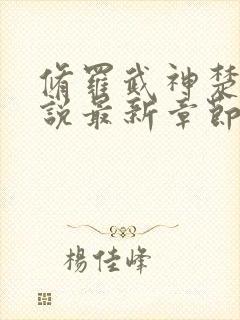 脩羅武神楚
說最新章節
楊佳峰